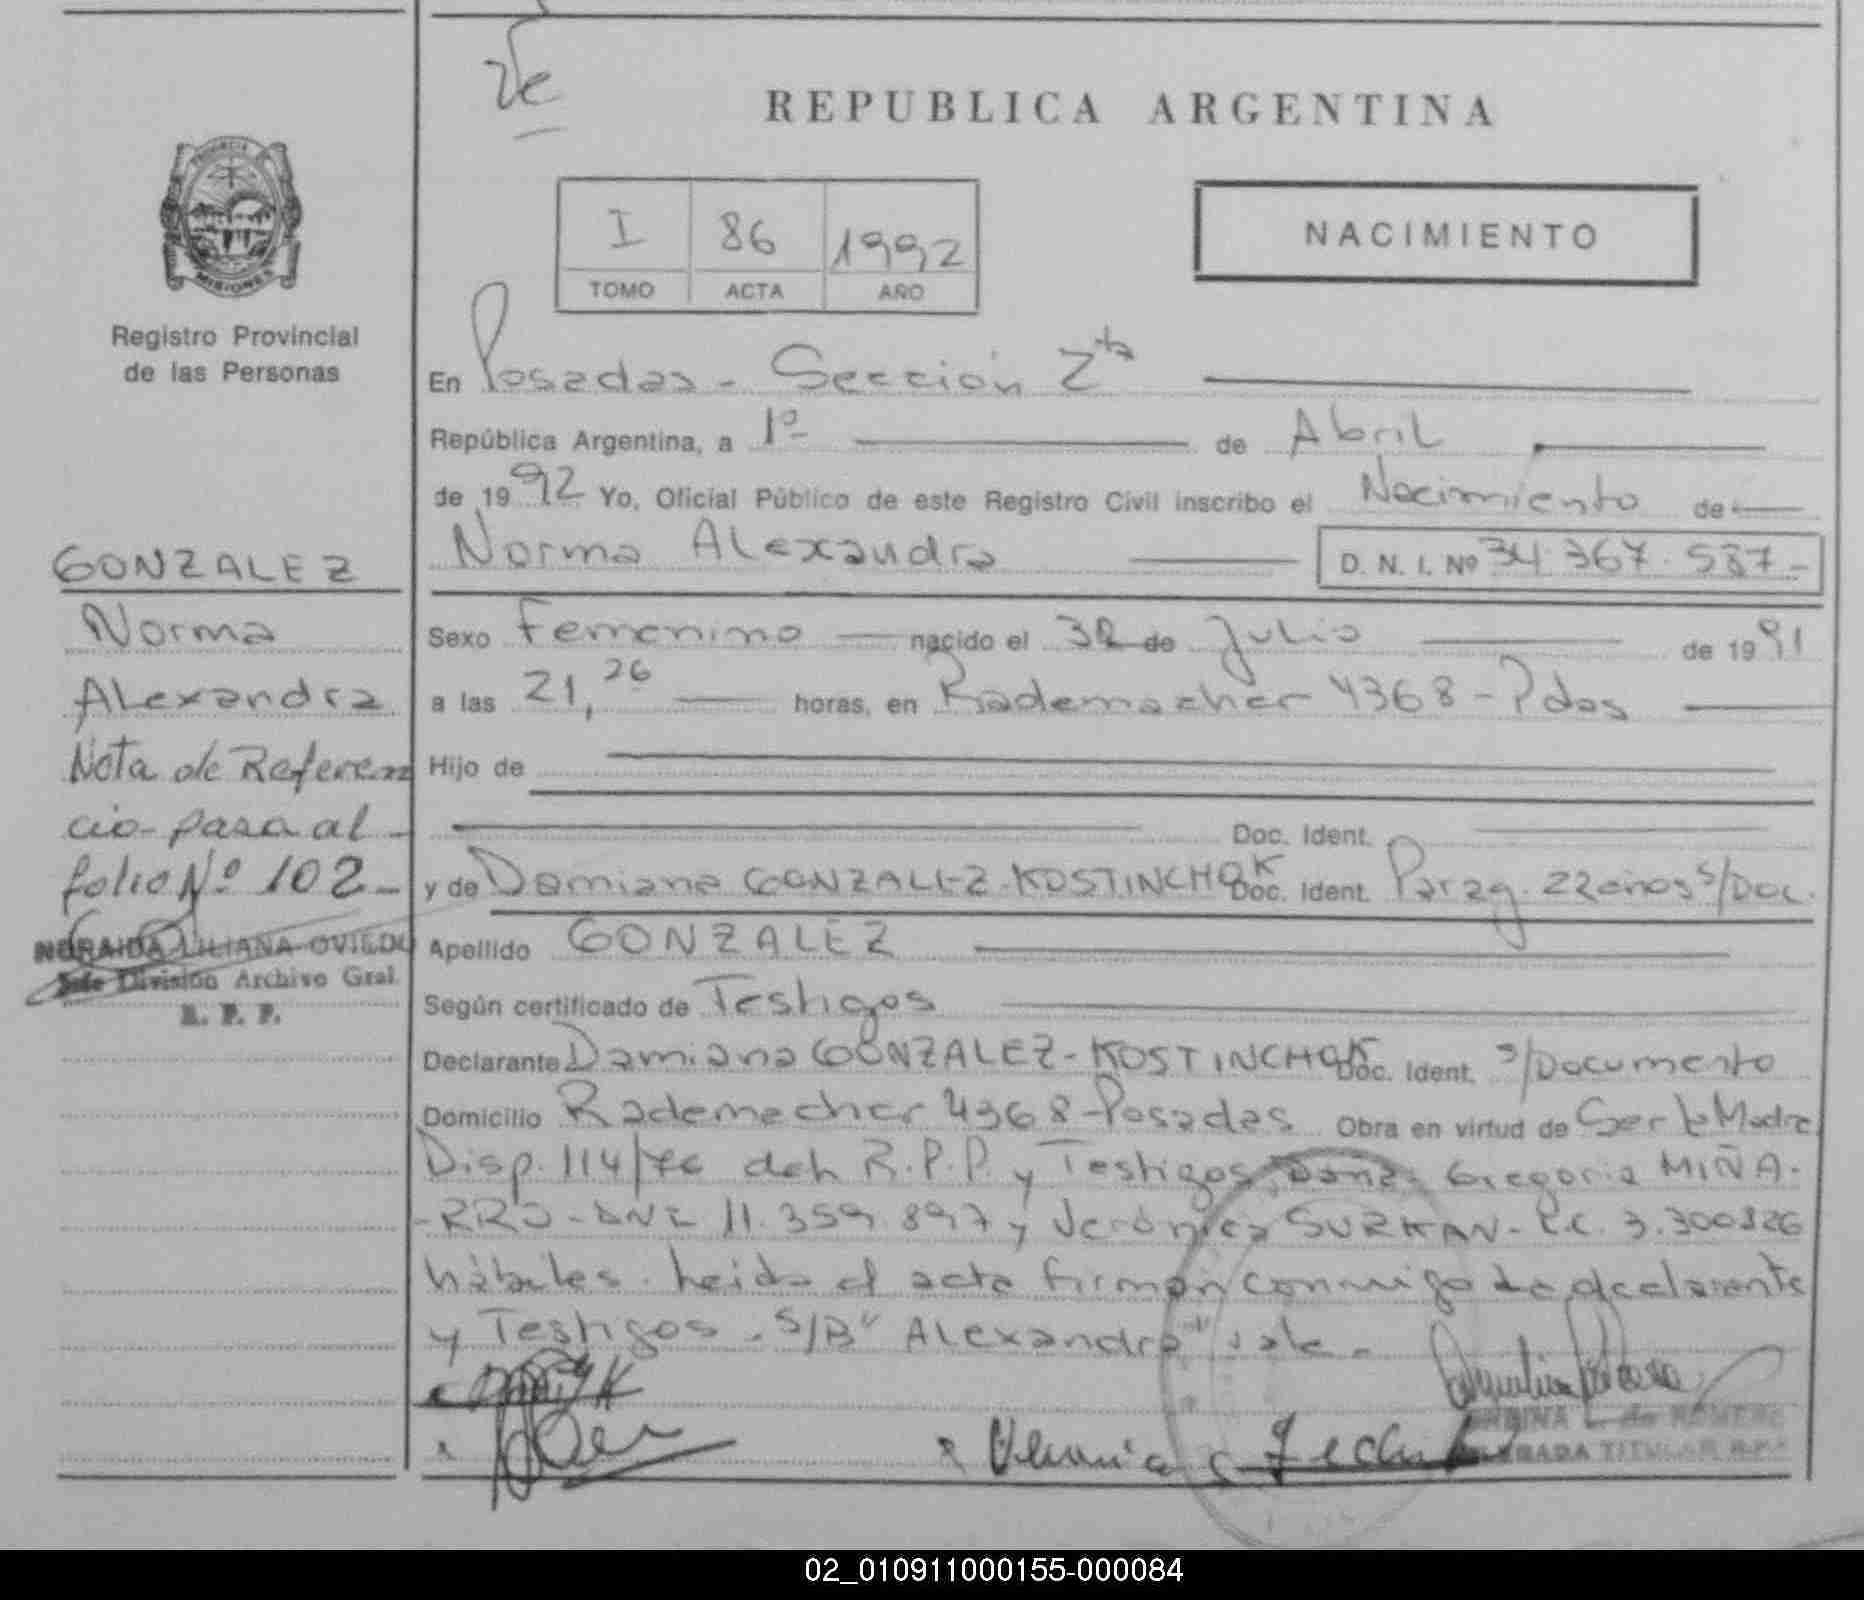 REPUBLICA ARGENTINA
NACIMIENTO
I 86 1992
TOMO ACTA AÑO
PROVINCIA
MISIONES
Registro Provincial
de las Personas
En Posadas - Sección 2ta
República Argentina, a 1º de Abril
de 1992 Yo, Oficial Público de este Registro Civil inscribo el Nacimiento de
Norma Alexandra D. N. I. Nº 34.367.587-
GONZALEZ
Norma
Alexandra
Nota de Referen
cia pasa al
folio Nº 102-
NORAIDA LILIANA OVIEDO
Jefe División Archivo Gral.
R. P. P.
Sexo Femenino nacido el 30 de Julio de 1991
a las 21,26 horas, en Rademacher 4368 - Pdas
Hijo de
Doc. Ident.
y de Damiana GONZALEZ-KOSTINCHOK Doc. Ident. Parag. 22 años s/Doc.
Apellido GONZALEZ
Según certificado de Testigos
Declarante Damiana GONZALEZ-KOSTINCHOK Doc. Ident. s/Documento
Domicilio Rademacher 4368-Posadas Obra en virtud de Ser la Madre
Disp. 114/76 del R.P.P. y Testigos Gregoria MIÑA-
-RRO-DNI 11.359.897 y Verónica SURKAN - 3.300826
hábiles. Leida el acta firman conmigo la declarante
y Testigos. S/B "Alexandra" vale.
TITULAR R.P.P.
02_010911000155-000084